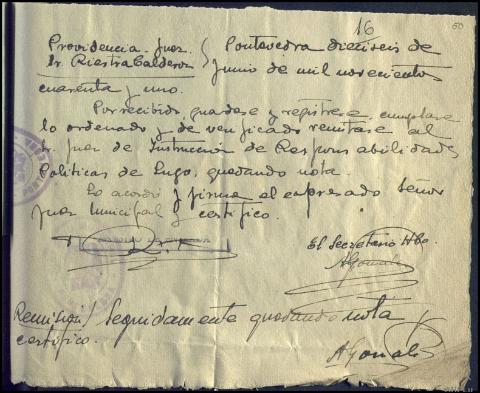 16
60
Providencia. Juez
Sr. Riestra Calderon
Pontevedra dieciseis de
Junio de mil novecientos
cuarenta y uno.
Por recibido, guardese y registrese, cumplase
lo ordenado y de verificado remitase al
Sr. Juez de Instrucción de Responsabilidades
Politicas de Lugo, quedando nota.
Lo acordó y firma el expresado Señor
Juez Municipal y certifico.
El Secretario Hbo.
AGonzal
Remisión / Seguidamente quedando nota
certifico.
AGonzal